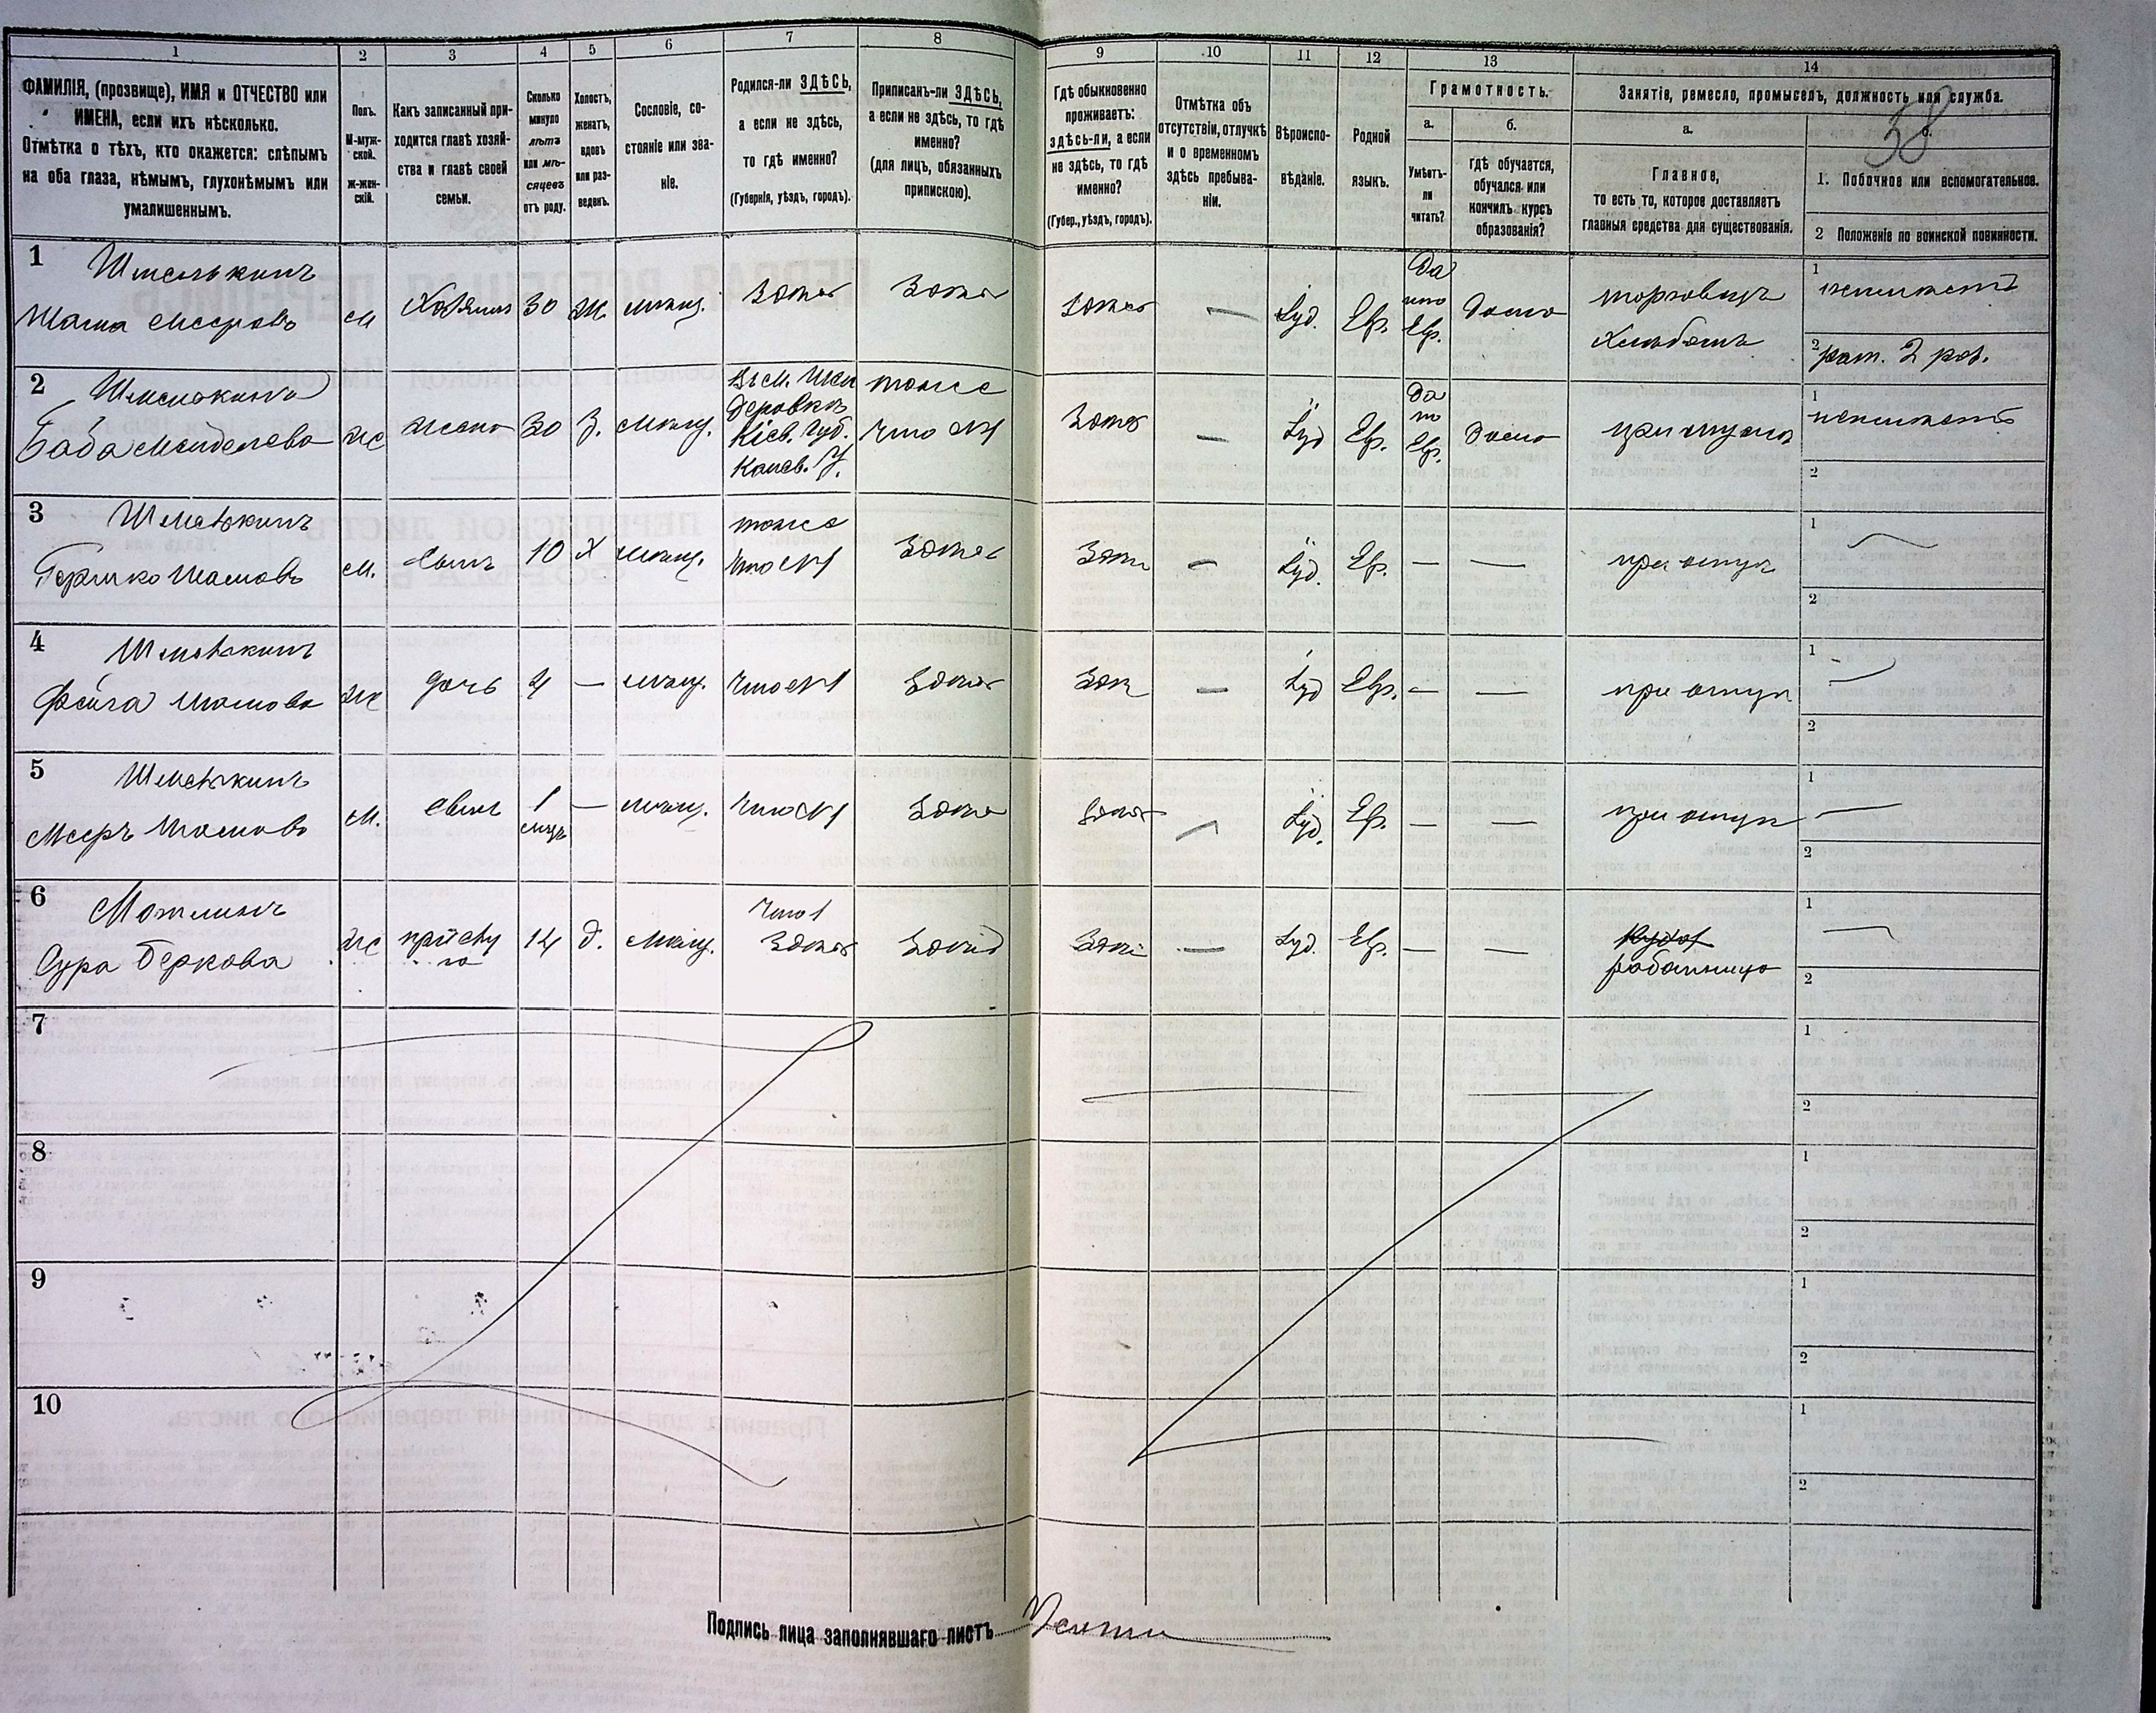 1 2 3 4 5 6 7 8 9 10 11 12 13 14
ФАМИЛІЯ, (прозвище), ИМЯ и ОТЧЕСТВО или
ИМЕНА, если ихъ нѣсколько.
Отмѣтка о тѣхъ, кто окажется: слѣпымъ
на оба глаза, нѣмымъ, глухонѣмымъ или
умалишеннымъ.
Полъ.
М-муж-
ской.
Ж-жен-
скій.
Какъ записанный при-
ходится главѣ хозяй-
ства и главѣ своей
семьи.
Сколько
минуло
лѣтъ
или мѣ-
сяцевъ
отъ роду.
Холостъ,
женатъ,
вдовъ
или раз-
веденъ.
Сословіе, со-
стояніе или зва-
ніе.
Родился-ли ЗДѢСЬ,
а если не здѣсь,
то гдѣ именно?
(Губернія, уѣздъ, городъ).
Приписанъ-ли ЗДѢСЬ,
а если не здѣсь, то гдѣ
именно?
(для лицъ, обязанныхъ
припискою).
Гдѣ обыкновенно
проживаетъ:
здѣсь-ли, а если
не здѣсь, то гдѣ
именно?
(Губер., уѣздъ, городъ).
Отмѣтка объ
отсутствіи, отлучкѣ
и о временномъ
здѣсь пребыва-
ніи.
Вѣроиспо-
вѣданіе.
Родной
языкъ.
Грамотность.
а.
Умѣетъ-
ли
читать?
б.
гдѣ обучается,
обучался или
кончилъ курсъ
образованія?
Занятіе, ремесло, промыселъ, должность или служба.
38
а.
Главное,
то есть то, которое доставляетъ
главныя средства для существованія.
б.
1. Побочное или вспомогательное.
2 Положеніе по воинской повинности.
1 Шмелькинъ
Шама Мееровъ
м
Хозяинъ
30
ж.
мѣщ.
Здѣсь
Здѣсь
Здѣсь
—
Іуд.
Евр.
Да
по
Евр.
Дома
торговецъ
Хлѣбомъ
1
2 рат. 2 раз.
2 Шмелькина
Баба Менделева
ж
жена
30
З.
мѣщ.
Кіев. Губ.
Канев. У.
тоже
что №1
Здѣсь
—
Іуд
Евр.
Да
по
Евр.
Дома
при мужѣ
1
2
3 Шмелькинъ
Гершко Шамовъ
м.
сынъ
10
Х
мѣщ.
тоже
что №1
Здѣсь
Здѣсь
—
Іуд.
Евр.
—
—
при отцѣ
1 —
2
4 Шмелькинъ
Фейга Шамова
ж
дочь
4
—
мѣщ.
что №1
Здѣсь
Здѣсь
—
Іуд
Евр.
—
—
при отцѣ
1 —
2
5 Шмелькинъ
Мееръ Шамовъ
м.
сынъ
1
мѣсц
—
мѣщ.
что №1
Здѣсь
Здѣсь
—
Іуд.
Евр.
—
—
при отцѣ
1 —
2
6
Сура Беркова
ж
14
д.
мѣщ.
Здѣсь
Здѣсь
Здѣсь
—
Іуд.
Евр.
—
—
работница
1 —
2
7
1
2
8
1
2
9
1
2
10
1
2
Подпись лица заполнявшаго листъ